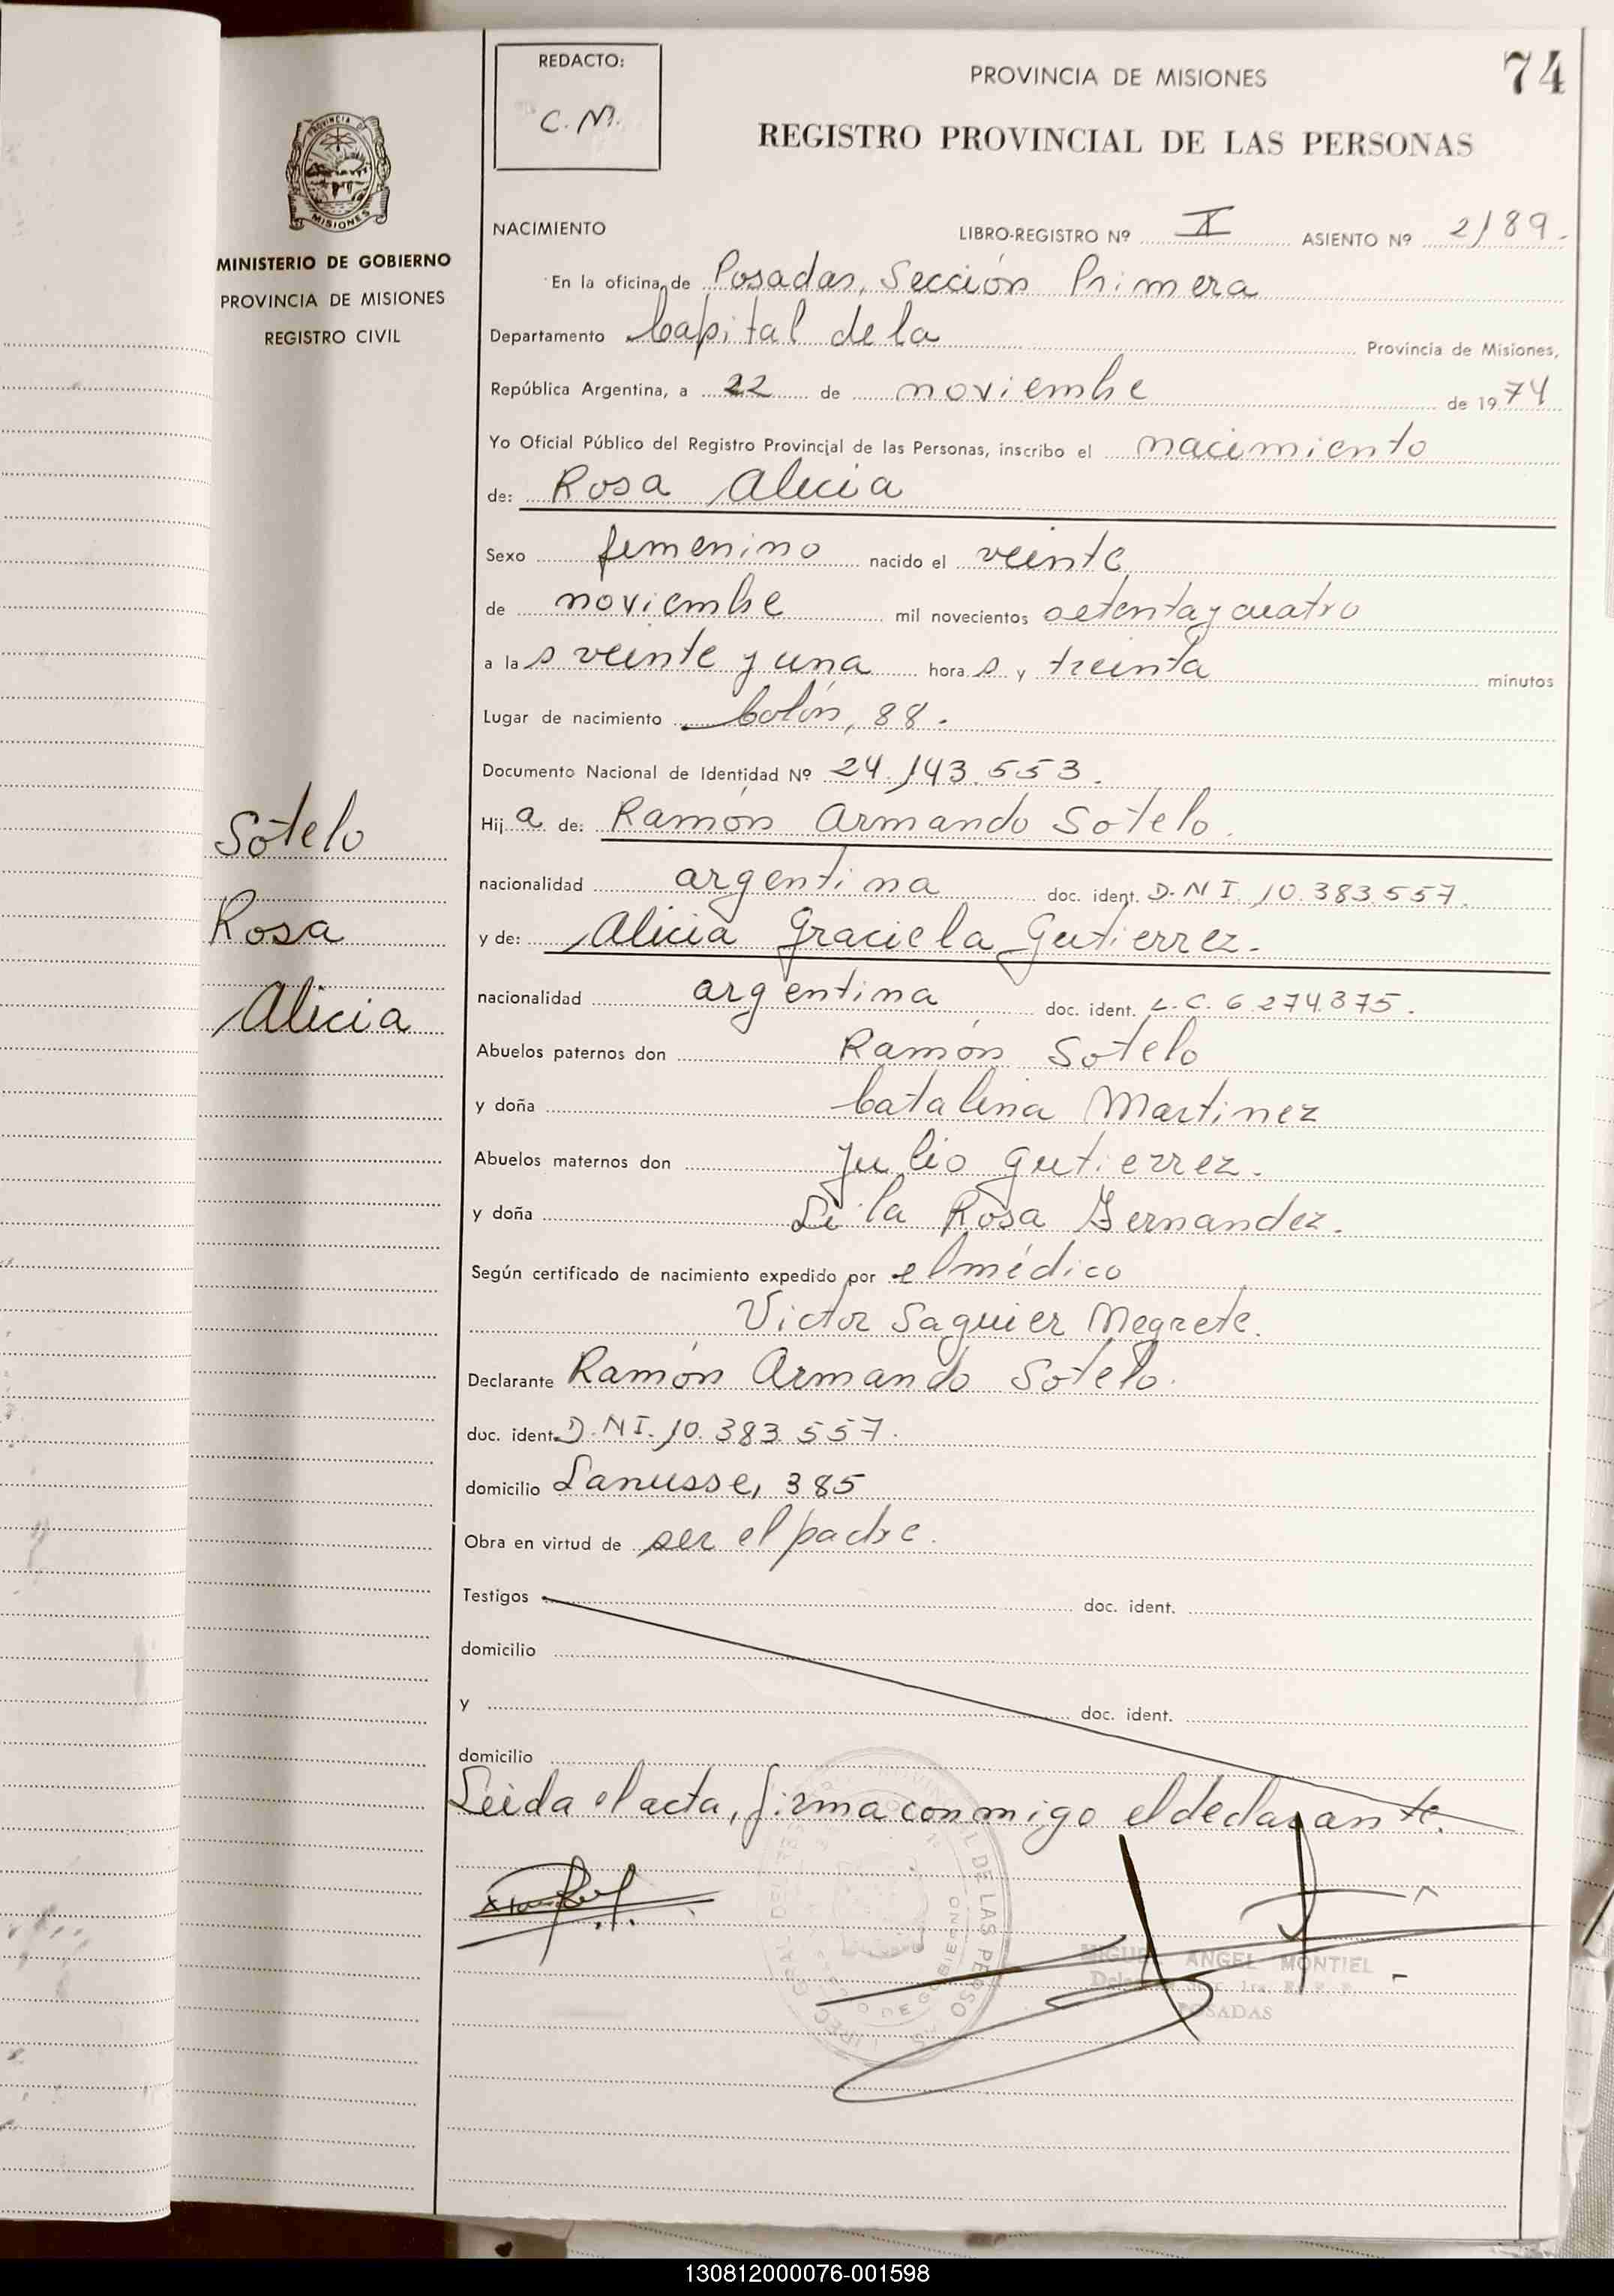 REDACTO:
C.M.
PROVINCIA DE MISIONES
74
REGISTRO PROVINCIAL DE LAS PERSONAS
PROVINCIA DE
MISIONES
MINISTERIO DE GOBIERNO
PROVINCIA DE MISIONES
REGISTRO CIVIL
NACIMIENTO LIBRO-REGISTRO Nº X ASIENTO Nº 2189.
En la oficina de Posadas, Sección Primera
Departamento Capital de la Provincia de Misiones,
República Argentina, a 22 de noviembre de 1974
Yo Oficial Público del Registro Provincial de las Personas, inscribo el nacimiento
de: Rosa Alicia
Sexo femenino nacido el veinte
de noviembre mil novecientos setenta y cuatro
a la s veinte y una hora s y treinta minutos
Lugar de nacimiento Colón, 88.
Documento Nacional de Identidad Nº 24.143.553.
Hij a de: Ramón Armando Sotelo.
nacionalidad argentina doc. ident. D.N.I. 10.383.557.
y de: Alicia Graciela Gutierrez.
nacionalidad argentina doc. ident. L.C. 6.274.375.
Abuelos paternos don Ramón Sotelo
y doña Catalina Martinez
Abuelos maternos don Julio Gutierrez.
y doña Lila Rosa Fernandez.
Según certificado de nacimiento expedido por el médico
Victor Saguier Negrete.
Declarante Ramón Armando Sotelo.
doc. ident. D.N.I. 10.383.557.
domicilio Lanusse, 385
Obra en virtud de ser el padre.
Testigos doc. ident.
domicilio
y doc. ident.
domicilio
Leida el acta, firma conmigo el declarante.
Sotelo
Rosa
Alicia
MIGUEL ANGEL MONTIEL
POSADAS
130812000076-001598